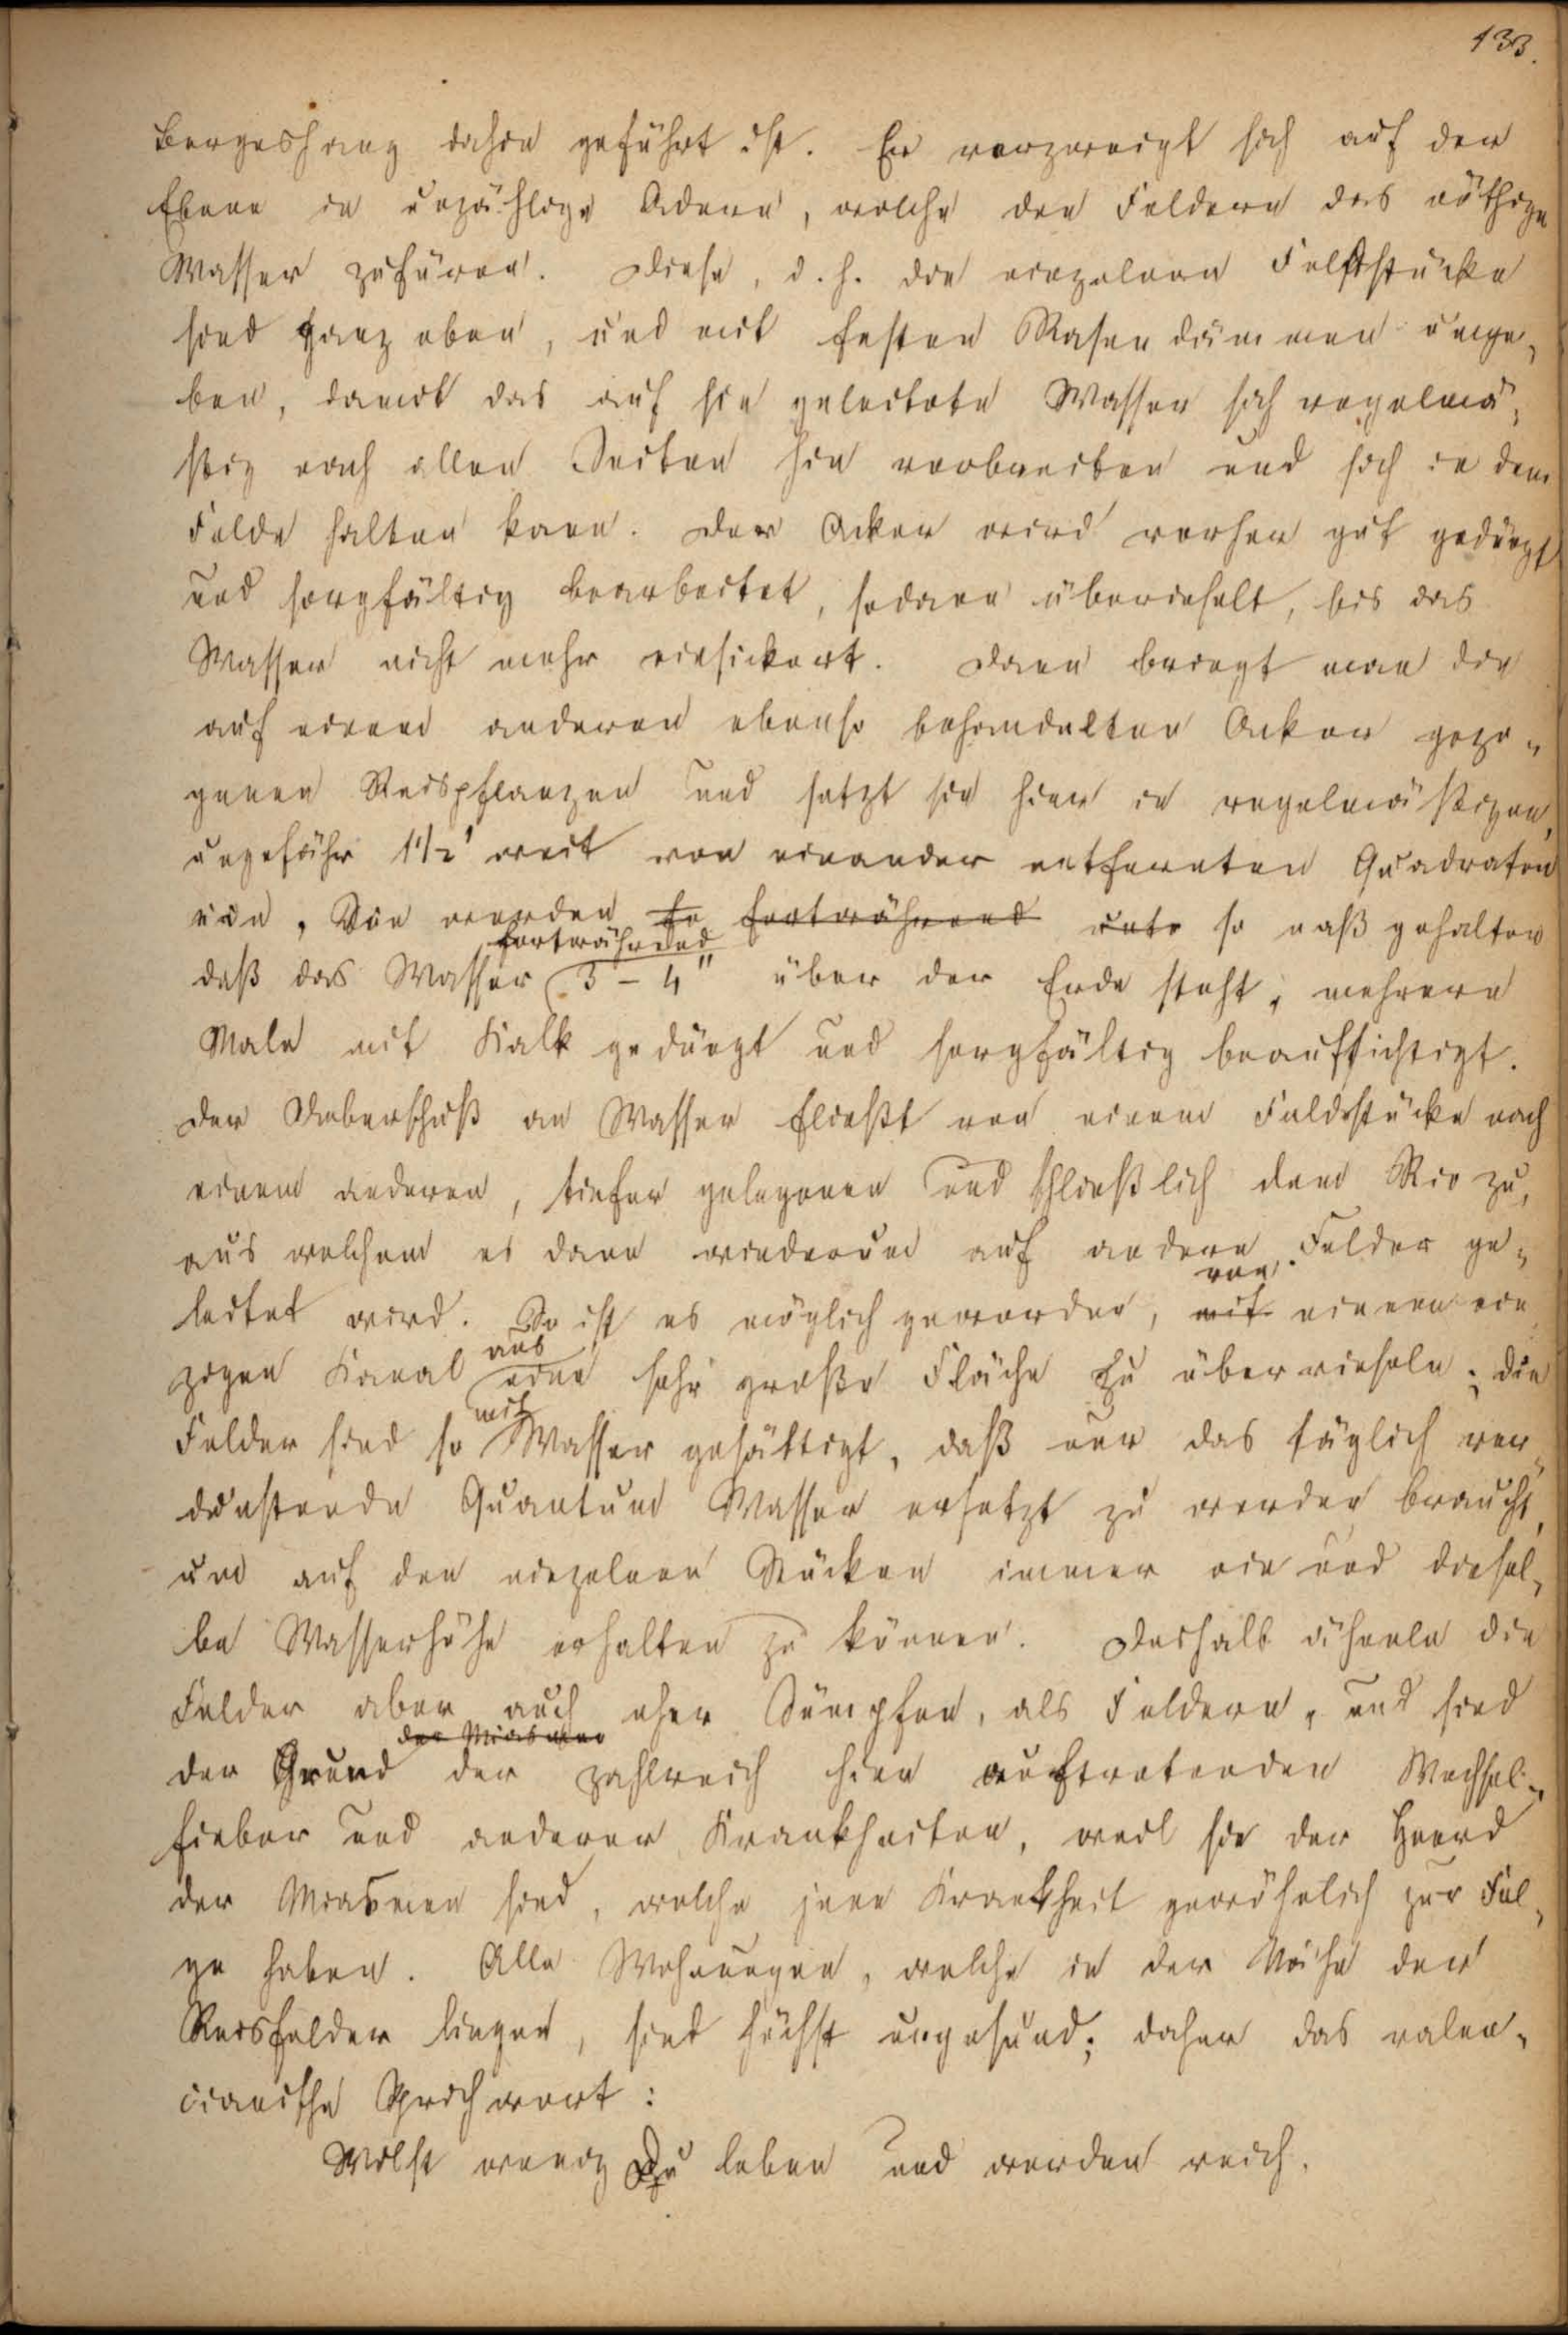 133.
Bergeshang dahin geführt ist. Er verzweigt sich auf der
Ebene in unzählige Adern, welche den Feldern das nöthige
Wasser zufüren. Diese, d. h. die einzelnen Feldstücke
sind ganz eben, und mit festen Rasendämmen umge-
ben, damit das auf sie geleitete Wasser sich regelmä-
ßig nach allen Seiten hin verbreiten und sich in dem
Felde halten kann. Der Acker wird vorher gut gedüngt
und sorgfältig bearbeitet, sodann überrieselt, bis das
Wasser nicht mehr einsickert. Dann bringt man die
auf einem anderen ebenso behandelten Acker gezo-
genen Reispflanzen und setzt sie hier in regelmäßigen,
ungefähr 1 1/2' weit von einander entfernten Quadraten
ein. Sie werden so fortwährend unter so naß gehalten
fortwährend
daß das Wasser 3 - 4" über der Erde steht, mehrere
Male mit Kalk gedüngt und sorgfältig beaufsichtigt.
Der Ueberschuß an Wasser fließt von einem Feldstücke nach
einem anderen, tiefer gelegenen und schließlich dem Rio zu,
aus welchem es dann wiederum auf andere Felder ge-
von
leitet wird. So ist es möglich geworden, mit einem ein
aus
zigen Kanal eine sehr große Fläche zu überrieseln; die
mit
Felder sind so Wasser gesättigt, daß nur das täglich ver-
dunstende Quantum Wasser ersetzt zu werden braucht,
um auf den einzelnen Stücken immer ein und diesel-
be Wasserhöhe erhalten zu können. Deshalb ähneln die
Felder aber auch eher Sümpfen, als Feldern, und sind
der Miasmen
der Grund der zahlreich hier auftretenden Wechsel-
fieber und anderer Krankheiten, weil sie der Heerd
der Miasmen sind, welche jene Krankheit gewöhnlich zur Fol-
ge haben. Alle Wohnungen, welche in der Nähe der
Reisfelder liegen, sind höchst ungesund; daher das valen-
cianische Sprichwort:
Willst wenig Du leben und werden reich,